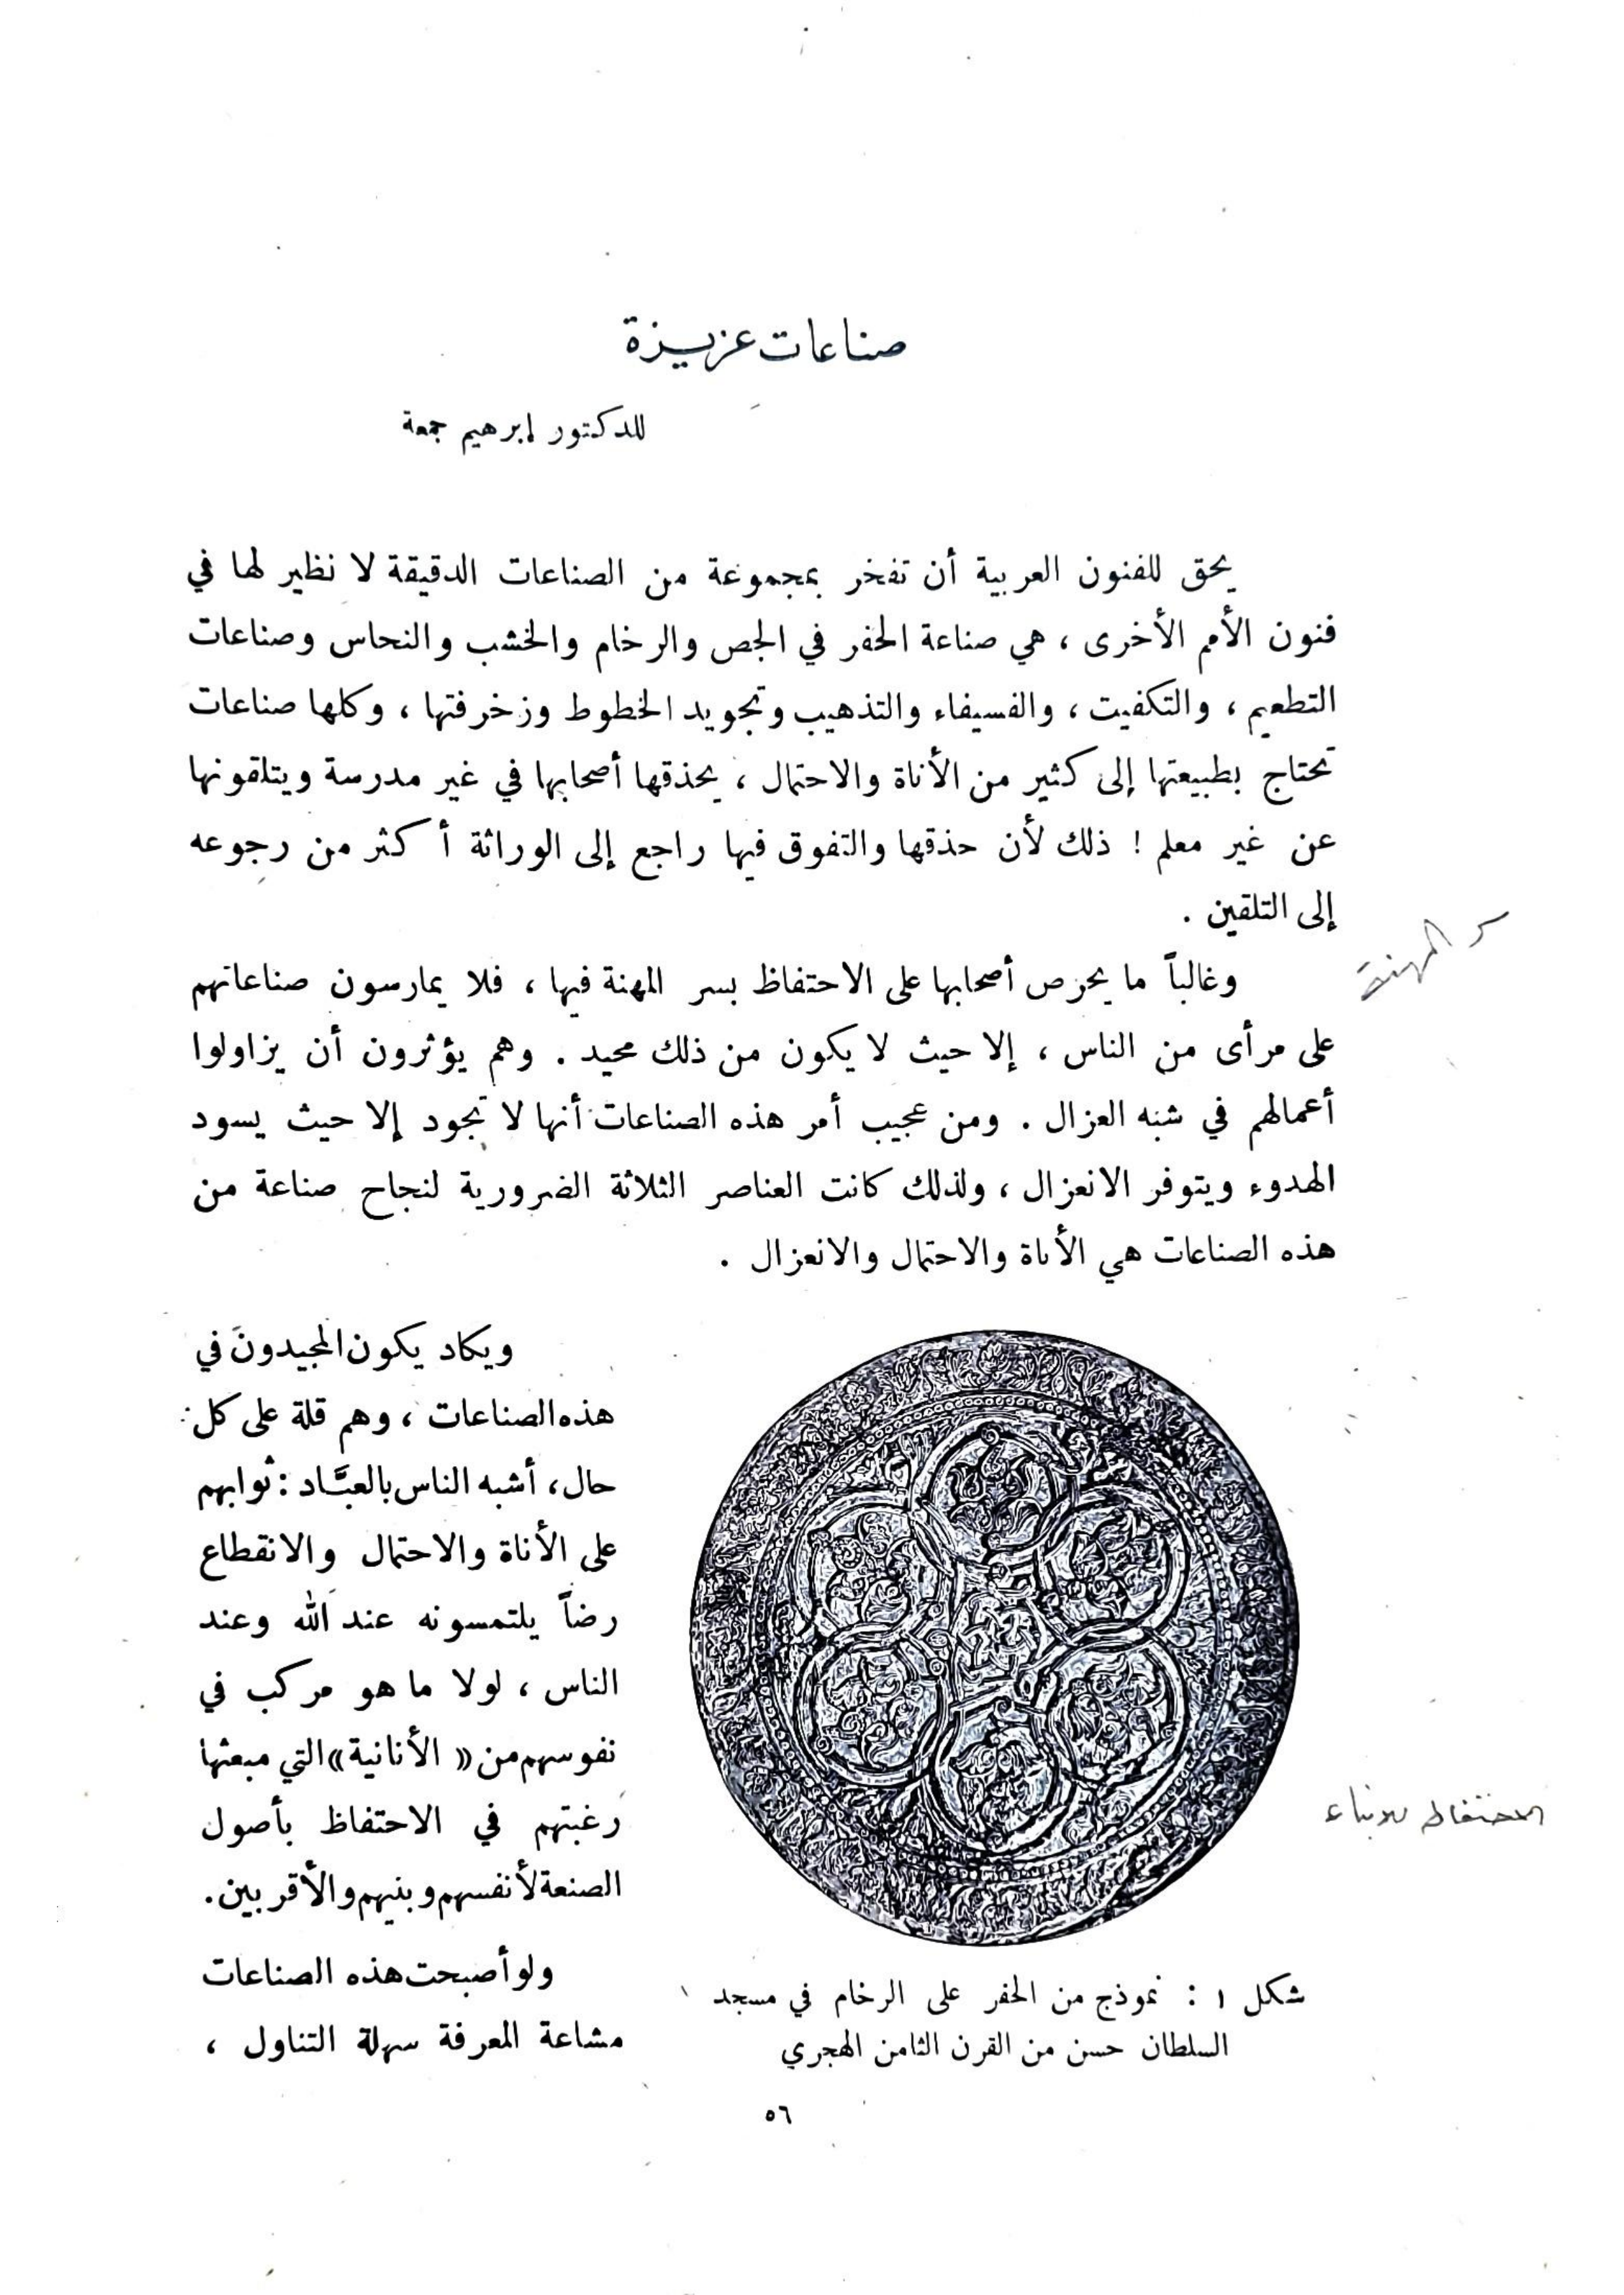 صناعات عزيزة
للدكتور إبرهيم جمعة
يحق للفنون العربية أن تفخر بمجموعة من الصناعات الدقيقة لا نظير لها في
فنون الأمم الأخرى ، هي صناعة الحفر في الجص والرخام والخشب والنحاس وصناعات
التطعيم ، والتكفيت ، والفسيفاء والتذهيب وتجويد الخطوط وزخرفتها ، وكلها صناعات
تحتاج بطبيعتها إلى كثير من الأناة والاحتمال ، يحذقها أصحابها في غير مدرسة ويتلقونها
عن غير معلم ! ذلك لأن حذقها والتفوق فيها راجع إلى الوراثة أكثر من رجوعه
إلى التلقين .
سر المهنة
وغالباً ما يحرص أصحابها على الاحتفاظ بسر المهنة فيها ، فلا يمارسون صناعاتهم
على مرأى من الناس ، إلا حيث لا يكون من ذلك محيد . وهم يؤثرون أن يزاولوا
أعمالهم في شبه العزال . ومن عجيب أمر هذه الصناعات أنها لا تجود إلا حيث يسود
الهدوء ويتوفر الانعزال ، ولذلك كانت العناصر الثلاثة الضرورية لنجاح صناعة من
هذه الصناعات هي الأناة والاحتمال والانعزال .
ويكاد يكون المجيدون في
هذه الصناعات ، وهم قلة على كل
حال ، أشبه الناس بالعبَّاد : ثوابهم
على الأناة والاحتمال والانقطاع
رضاً يلتمسونه عند الله وعند
الناس ، لولا ما هو مركب في
نفوسهم من « الأنانية » التي مبعثها
رغبتهم في الاحتفاظ بأصول
الصنعة لأنفسهم وبنيهم والأقربين .
الاحتفاظ للابناء
ولو أصبحت هذه الصناعات
مشاعة المعرفة سهلة التناول ،
شكل ١ : نموذج من الحفر على الرخام في مسجد
السلطان حسن من القرن الثامن الهجري
٥٦